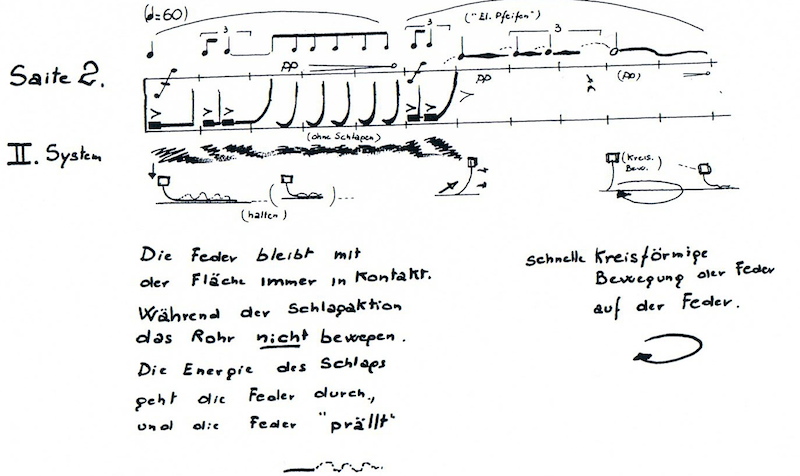 (♩=60)
3
3
("El. Pfeifen")
3
Saite 2.
pp
pp
(pp)
(ohne Schlagen)
II. System
(Kreis.
Bew.)
(halten)
Die Feder bleibt mit
der Fläche immer in Kontakt.
Während der Schlagaktion
das Rohr nicht bewegen.
Die Energie des Schlags
geht die Feder durch,
und die Feder "prällt"
schnelle Kreisförmige
Bewegung der Feder
auf der Feder.